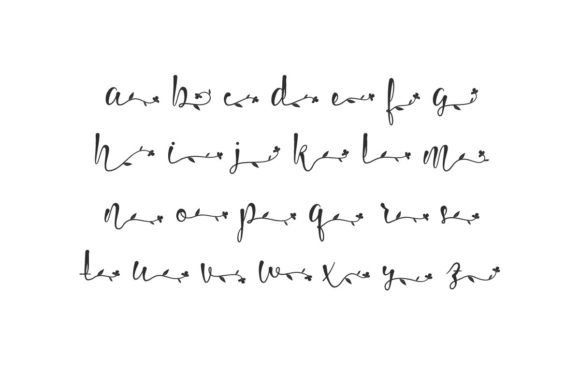 a b c d e f g
h i j k l m
n o p q r s
t u v w x y z